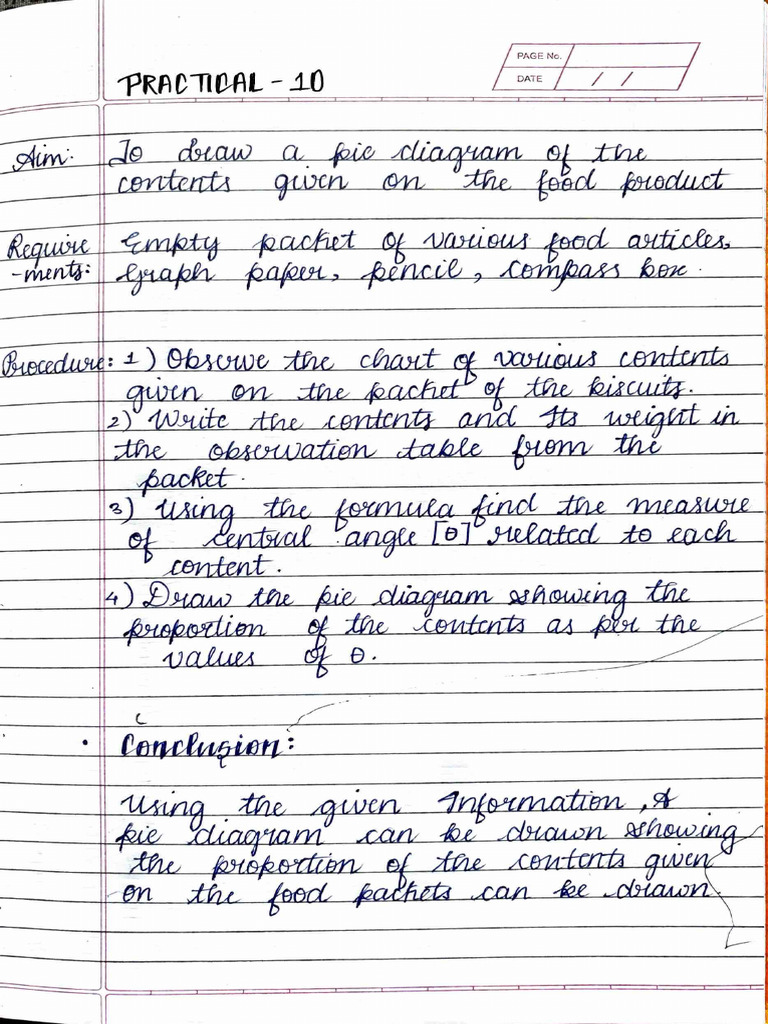 PAGE No.
DATE / /
PRACTICAL - 10
Aim: To draw a pie diagram of the
contents given on the food product
Require Empty packet of various food articles,
-ments: Graph paper, pencil, compass box.
Procedure: 1) Observe the chart of various contents
given on the packet of the biscuits.
2) Write the contents and Its weight in
the observation table from the
packet.
3) Using the formula find the measure
of central angle [θ] related to each
content.
4) Draw the pie diagram showing the
proportion of the contents as per the
values of θ.
• Conclusion:
Using the given Information, A
pie diagram can be drawn showing
the proportion of the contents given
on the food packets can be drawn.